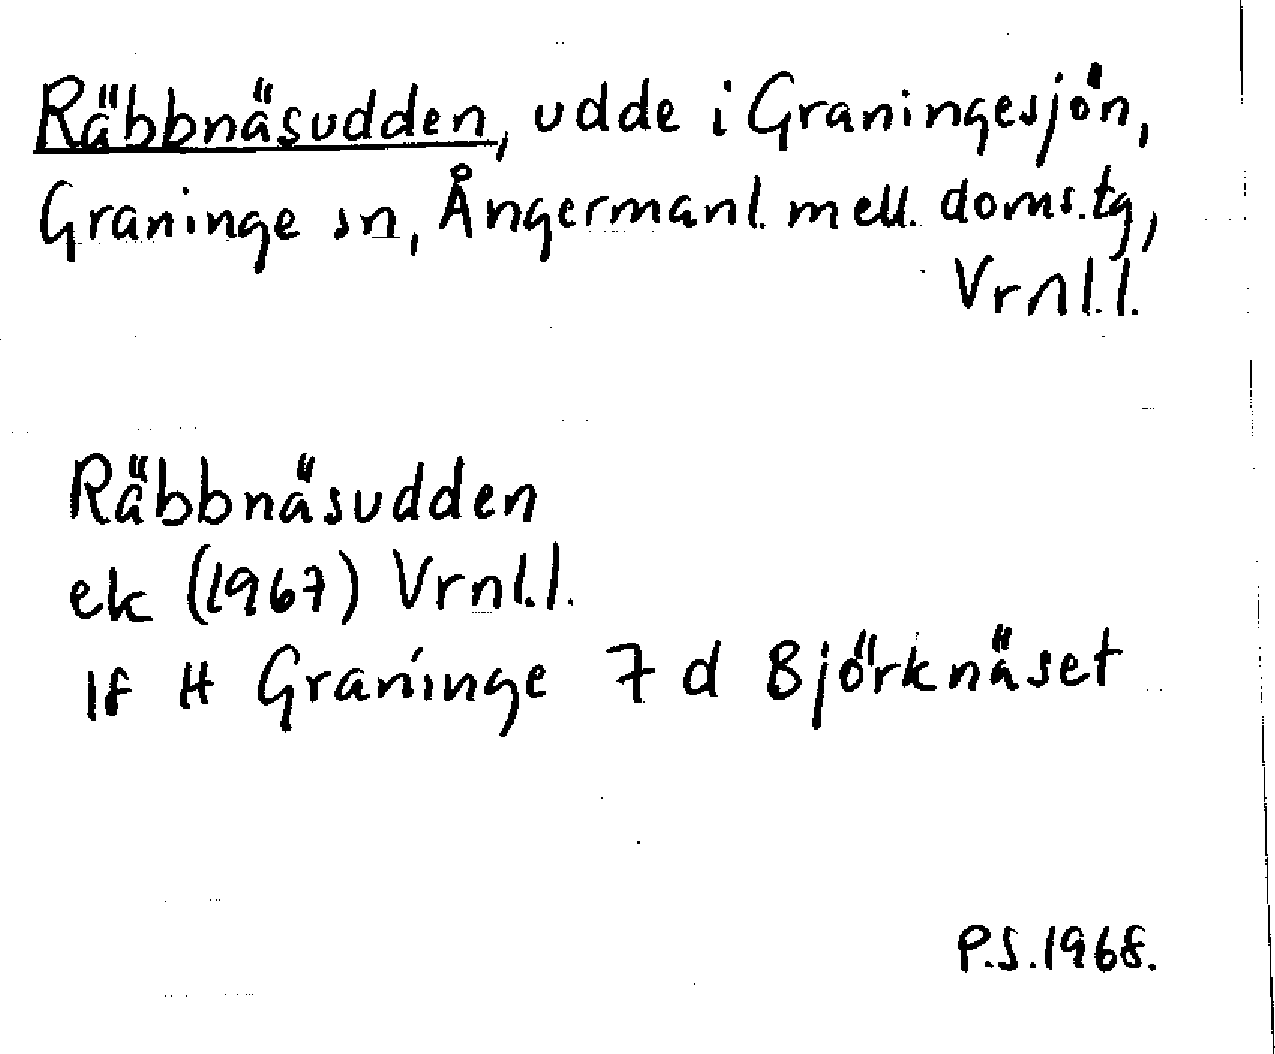 Räbbnäsudden, udde i Graningesjön,
Graninge sn, Ångermanl. mell. doms.tg,
Vrnl.l.
Räbbnäsudden
ek (1967) Vrnl.l.
If H Graninge 7 d Björknäset
P.S. 1968.